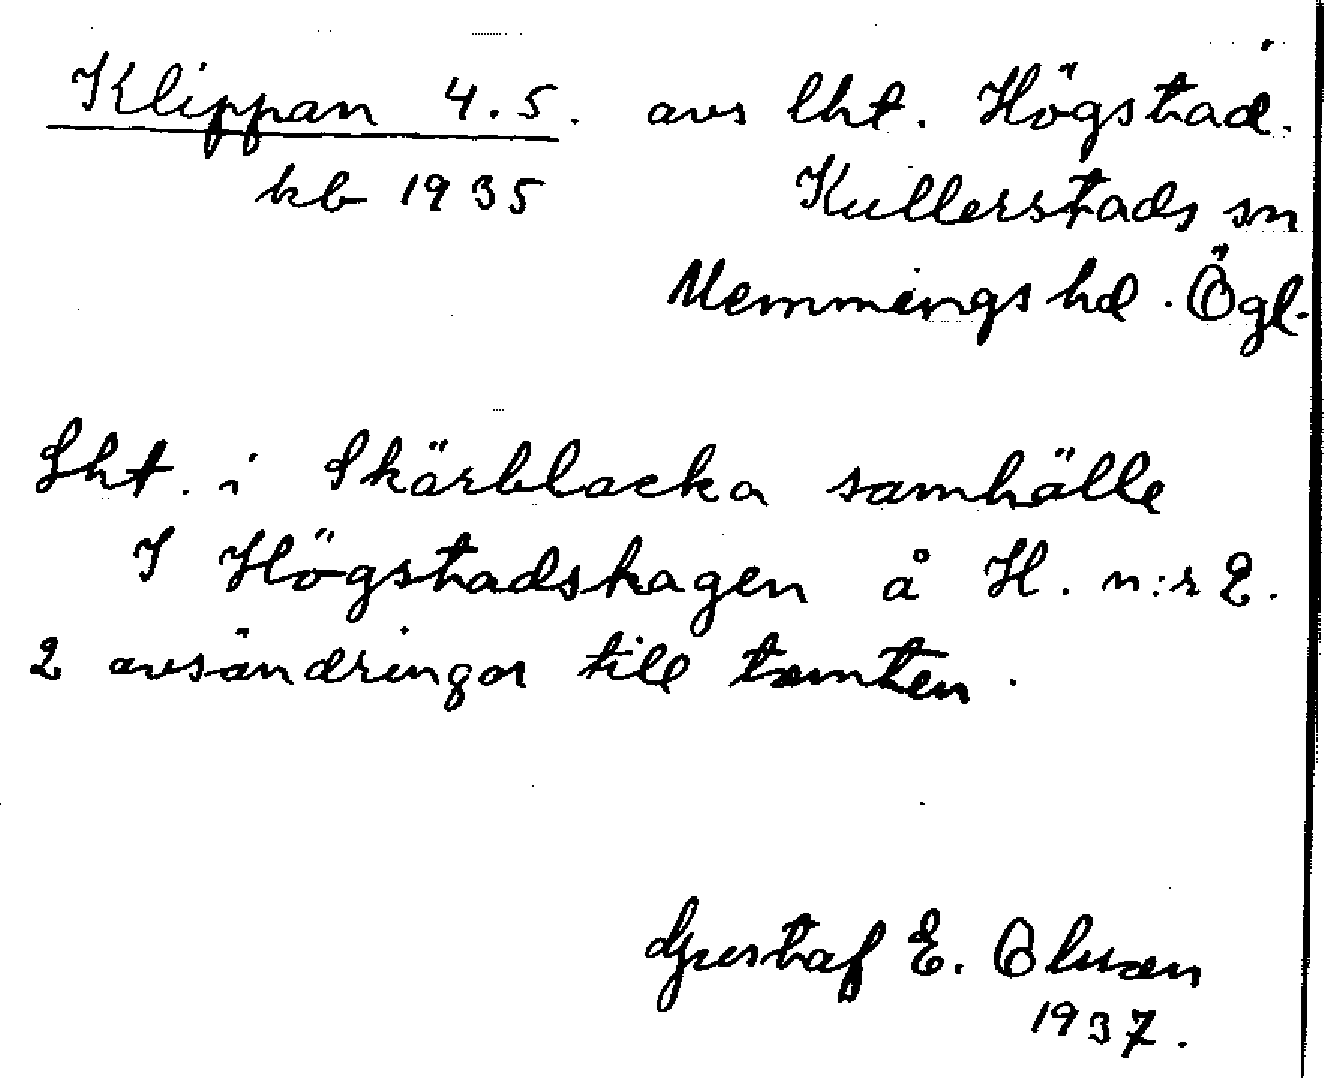 Klippan 4.5. avs lht. Högstad.
kb 1935 Kullerstads sn
Memmings hd. Ögl.
Lht. i Skärblacka samhälle
I Högstadshagen å H. n:r 2.
2 avsöndringar till tomten.
Gustaf E. Olsson
1937.